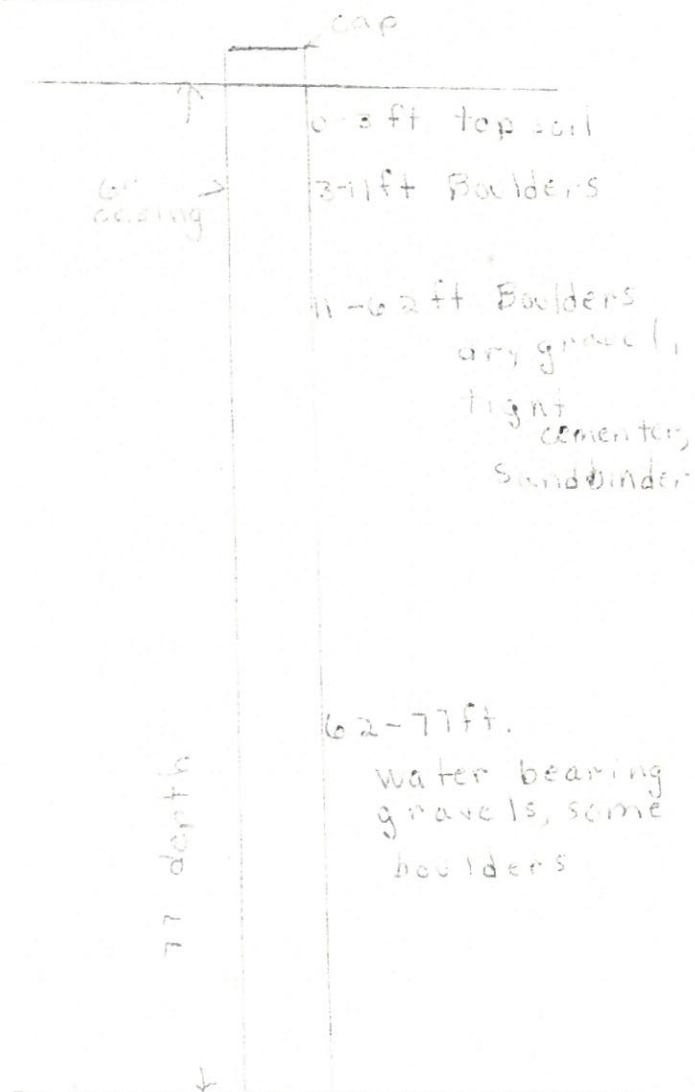 cap
0-3 ft top soil
6"
casing
3-11ft Boulders
11-62ft Boulders
dry gravel,
tight
sandbinder
62-77ft.
water bearing
gravels, some
boulders
77 depth